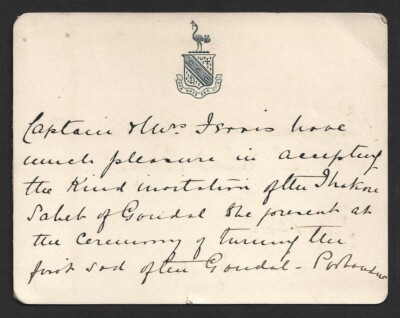 Captain & Mrs Ferris have
much pleasure in accepting
the Kind invitation of the Thakore
Saheb of Gondal to be present at
the Ceremony of turning the
first sod of the Gondal - Porbandar